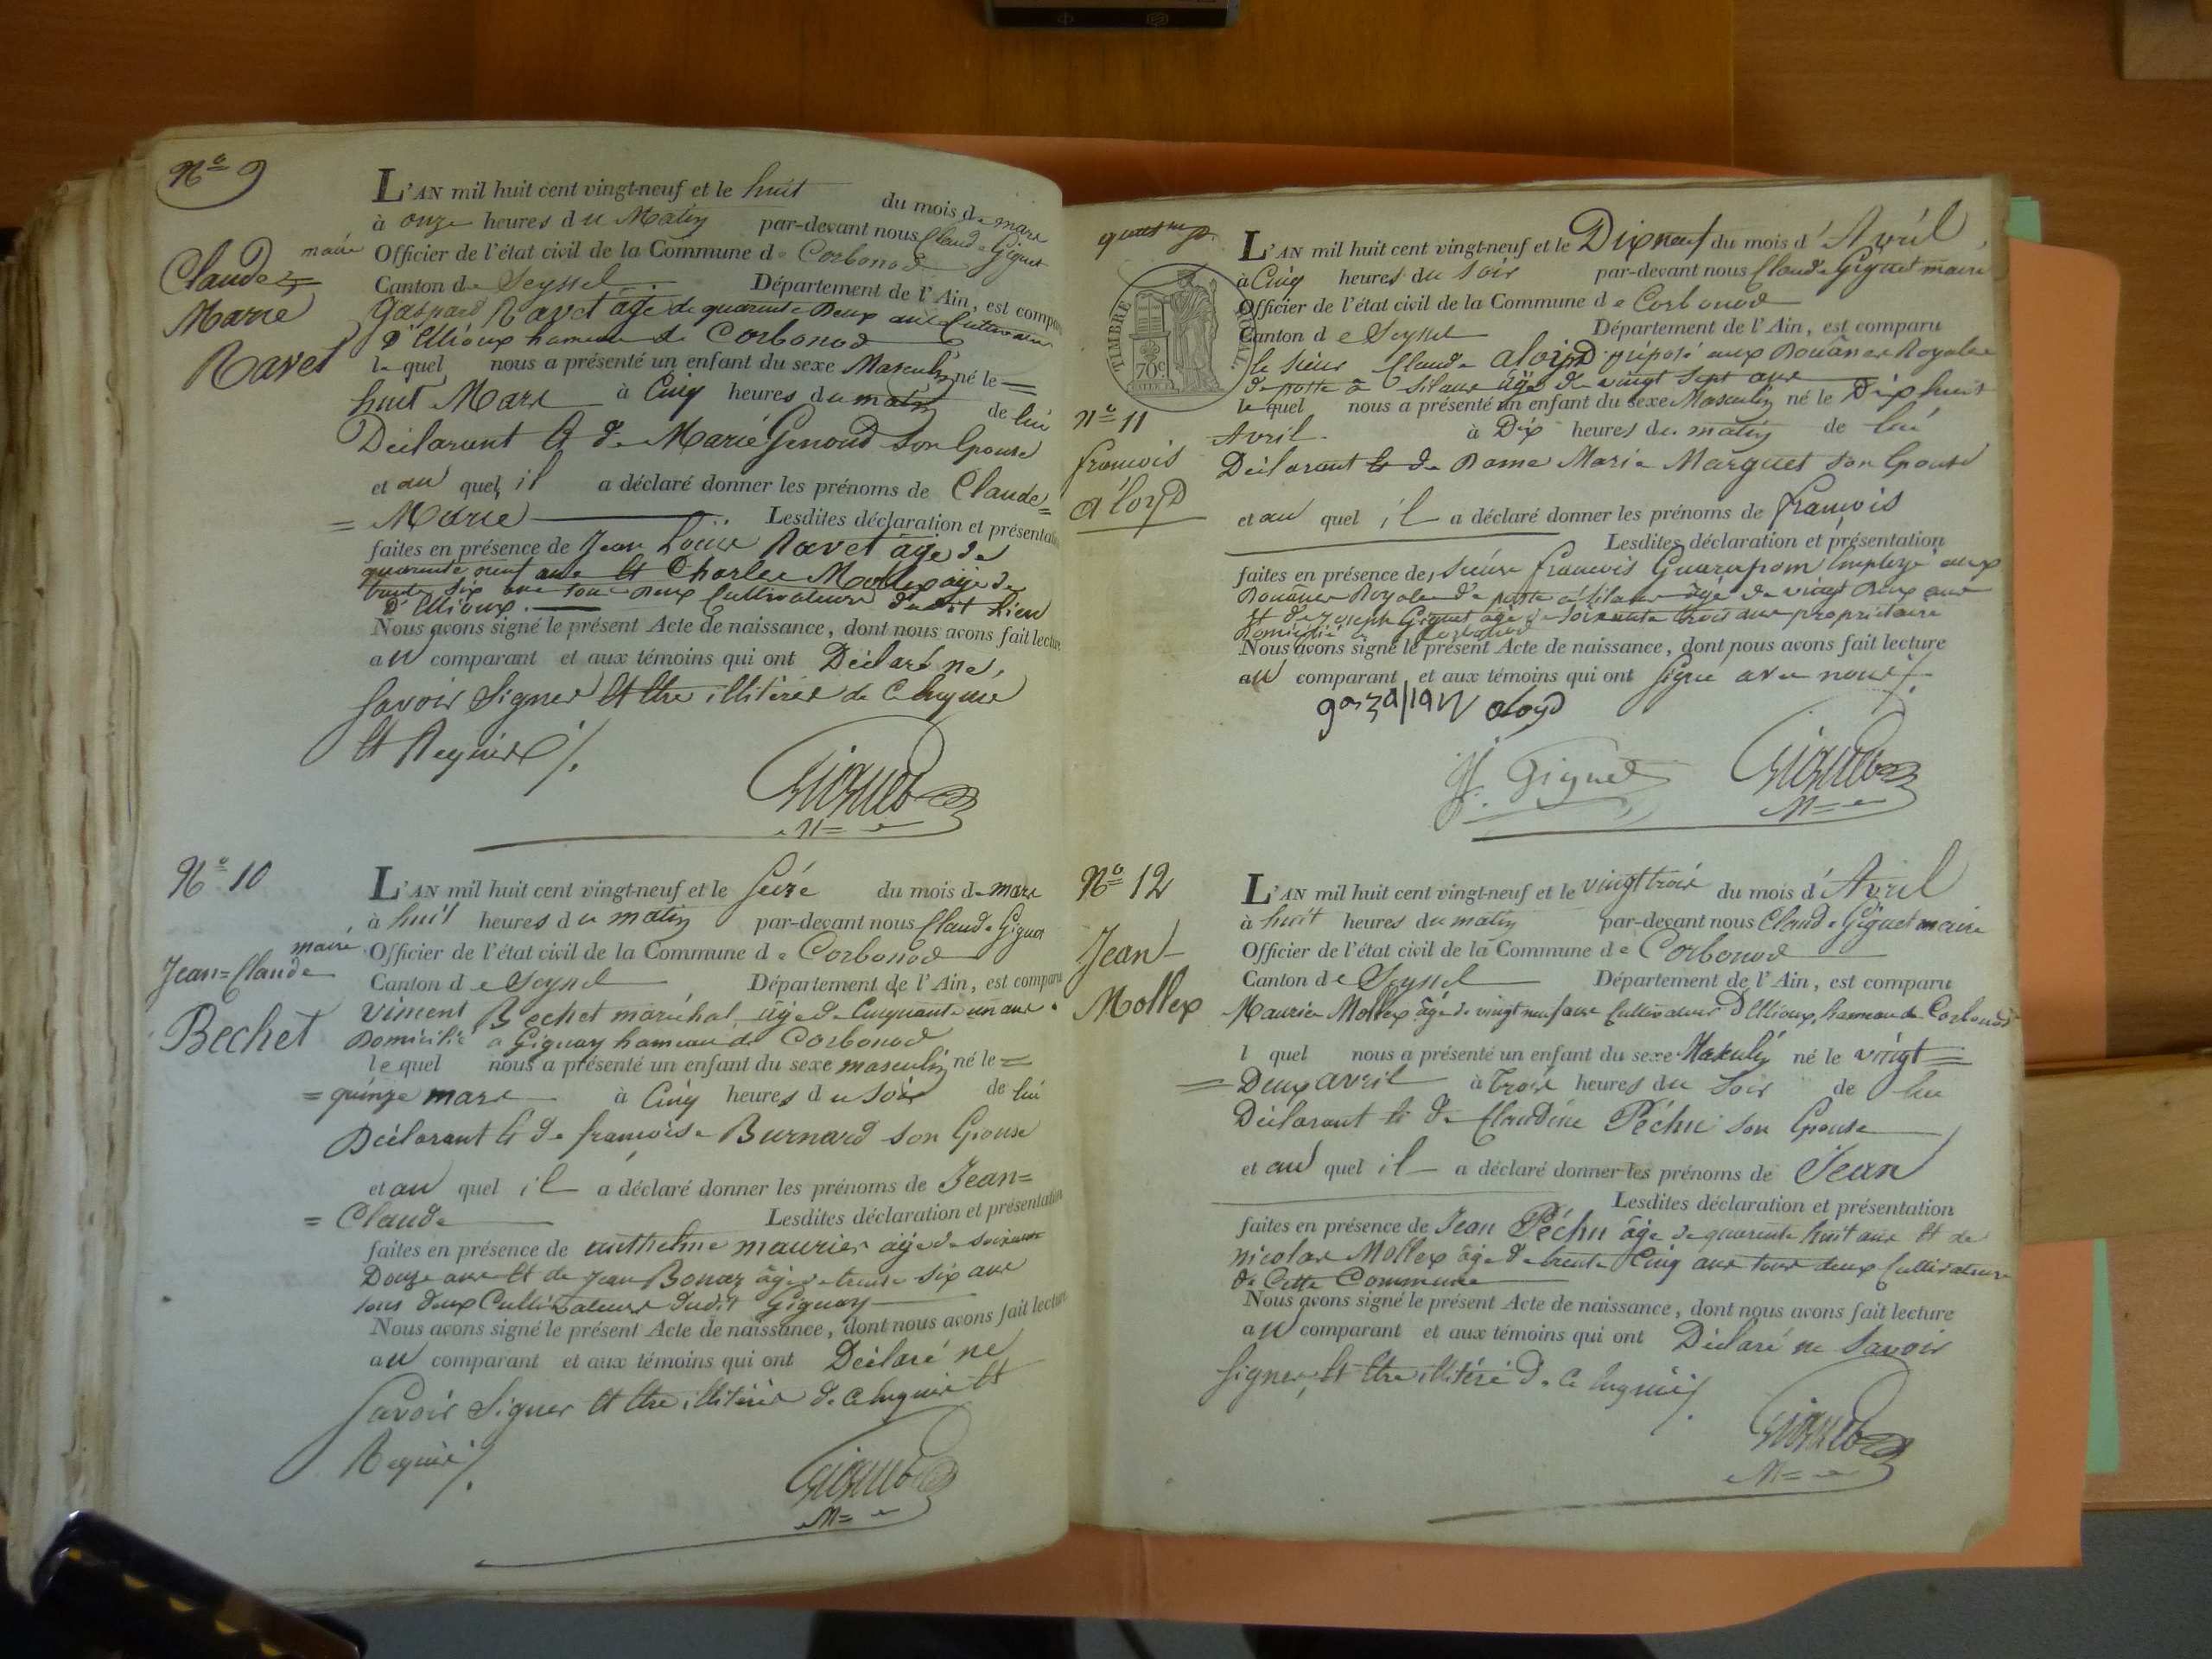 N° 9
Claude=
Marie
Ravet
L'AN mil huit cent vingt-neuf et le huit du mois de mars
à onze heures du Matin par-devant nous Claude Giguet
maire Officier de l'état civil de la Commune de Corbonod
Canton de Seyssel Département de l'Ain, est comparu
Gaspard Ravet âgé de quarante Deux ans Cultivateur
D'ElLioux hameau de Corbonod
le quel nous a présenté un enfant du sexe Masculin né le =
huit Mars à Cinq heures du matin de lui
Déclarant Et de Marie Genoud son Epouse
et au quel il a déclaré donner les prénoms de Claude=
= Marie Lesdites déclaration et présentation
faites en présence de Jean Louis Ravet âgé de
quarante neuf ans Et Charles Mollex âgé de
trente six ans tous Deux Cultivateurs dudit Lieu
D'Ellioux.
Nous avons signé le présent Acte de naissance, dont nous avons fait lecture
au comparant et aux témoins qui ont Déclaré ne,
Savoir Signer Et Etre illitérés de Ce Enquis
Et Requis ./.
Giguet
M=e
N° 10
Jean=Claude
Bechet
L'AN mil huit cent vingt-neuf et le Seize du mois de mars
à huit heures du matin par-devant nous Claude Giguet
maire Officier de l'état civil de la Commune de Corbonod
Canton de Seyssel Département de l'Ain, est comparu
Vincent Bechet maréchal âgé de Cinquante un ans.
Domicilié à Gignay hameau de Corbonod
le quel nous a présenté un enfant du sexe masculin né le =
= quinze mars à Cinq heures du Soir de lui
Déclarant Et de françoise Burnard son Epouse
et au quel il a déclaré donner les prénoms de Jean=
= Claude Lesdites déclaration et présentation
faites en présence de anthelme maurier âgé de soixante
Douze ans Et de Jean Bonaz âgé de trente six ans
tous deux Cultivateurs dudit Gignay
Nous avons signé le présent Acte de naissance, dont nous avons fait lecture
au comparant et aux témoins qui ont Déclaré ne
Savoir Signer Et Etre illitérés de Ce Enquis Et
Requis ./.
Giguet
M=e
TIMBRE ROYAL
70c
N° 11
françois
aloyd
L'AN mil huit cent vingt-neuf et le Dix neuf du mois d'Avril
à Cinq heures du Soir par-devant nous Claude Giguet maire
Officier de l'état civil de la Commune de Corbonod
Canton de Seyssel Département de l'Ain, est comparu
le sieur Claude aloyd préposé aux Douanes Royales
de poste à Silans âgé de vingt sept ans
le quel nous a présenté un enfant du sexe Masculin né le Dix huit
Avril à Dix heures du matin de lui
Déclarant Et de Dame Marie Marguet son Epouse
et au quel il a déclaré donner les prénoms de françois
Lesdites déclaration et présentation
faites en présence de, sieurs françois Employé aux
Douanes Royales de poste à Silans âgé de vingt Deux ans
Et de Joseph Giguet âgé de soixante trois ans propriétaire
Domicilié à Corbonod
Nous avons signé le présent Acte de naissance, dont nous avons fait lecture
au comparant et aux témoins qui ont Signé avec nous ./.
aloyd
J. Giguet Giguet
M=e
N° 12
Jean
Mollex
L'AN mil huit cent vingt-neuf et le vingt trois du mois d'Avril
à huit heures du matin par-devant nous Claude Giguet maire
Officier de l'état civil de la Commune de Corbonod
Canton de Seyssel Département de l'Ain, est comparu
Maurice Mollex âgé de vingt neuf ans Cultivateur D'Ellioux, hameau de Corbonod
l quel nous a présenté un enfant du sexe Masculin né le vingt =
= Deux avril à trois heures du Soir de lui
Déclarant Et de Claudine Péchu son Epouse
et au quel il a déclaré donner les prénoms de Jean
Lesdites déclaration et présentation
faites en présence de Jean Péchu âgé de quarante huit ans Et de
nicolas Mollex âgé de trente Cinq ans tous deux Cultivateurs
de Cette Commune
Nous avons signé le présent Acte de naissance, dont nous avons fait lecture
au comparant et aux témoins qui ont Déclaré ne Savoir
Signer, Et Etre illitéré de Ce Enquis ./.
Giguet
M=e